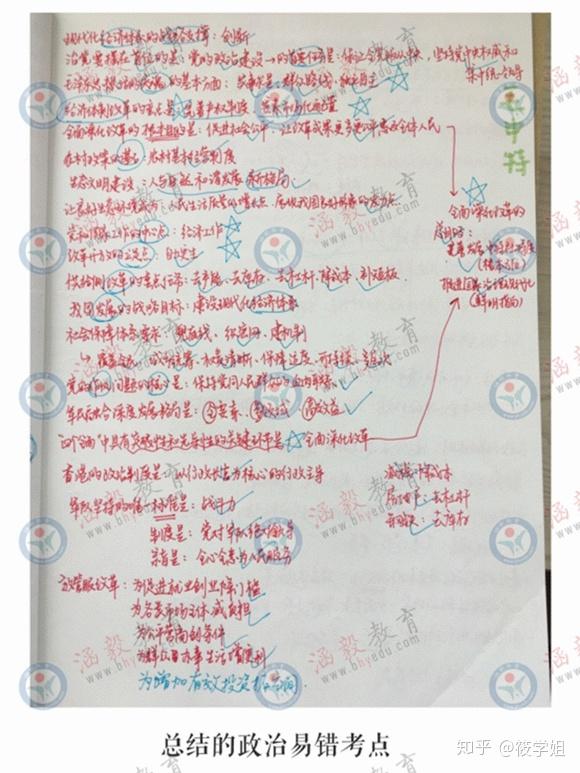 现代化经济体系的战略支撑：创新
治党要摆在首位的是：党的政治建设→的首要任务是：保证全党服从中央，坚持党中央权威和
集中统一领导
毛泽东思想活的灵魂的基本方面：实事求是、群众路线、独立自主
经济体制改革的重点是：完善产权制度、要素市场化配置
全面深化改革的根本目的是：促进社会公平，让改革成果更多更公平惠及全体人民
农村改革的：农村基本经营制度
生态文明建设：人与自然和谐发展新格局
让良好生态环境成为：人民生活质量的增长点、展现我国良好形象的发力点
党和国家工作的中心：经济工作
改革开放的立足点：自力更生
供给侧改革的重点任务：去产能、去库存、去杠杆、降成本、补短板
我国发展的战略目标：建设现代化经济体系
社会保障体系要求：兜底线、织密网、建机制
覆盖全民、城乡统筹、权责清晰、保障适度、可持续、多层次
党的作风问题的核心是：保持党同人民群众的血肉联系
军民融合深度发展格局是：全要素、多领域、高效益
四个全面中具有突破性和先导性的关键环节是 全面深化改革
香港的政治制度是：以行政长官为核心的行政主导
军队坚持的唯一标准是：战斗力
制度是：党对军队绝对领导
宗旨是：全心全意为人民服务
放管服改革：为促进就业创业降门槛
为各类市场主体减负担
为公平营商创条件
为群众办事生活增便利
为增加有效投资拓空间
三中特
全面深化改革的
总目标：
完善发展中特社制度
推进国家治理现代化
(鲜明指向)
降成本
去杠杆
去库存
涵毅教育
www.bhyedu.com
总结的政治易错考点
知乎 @筱学姐